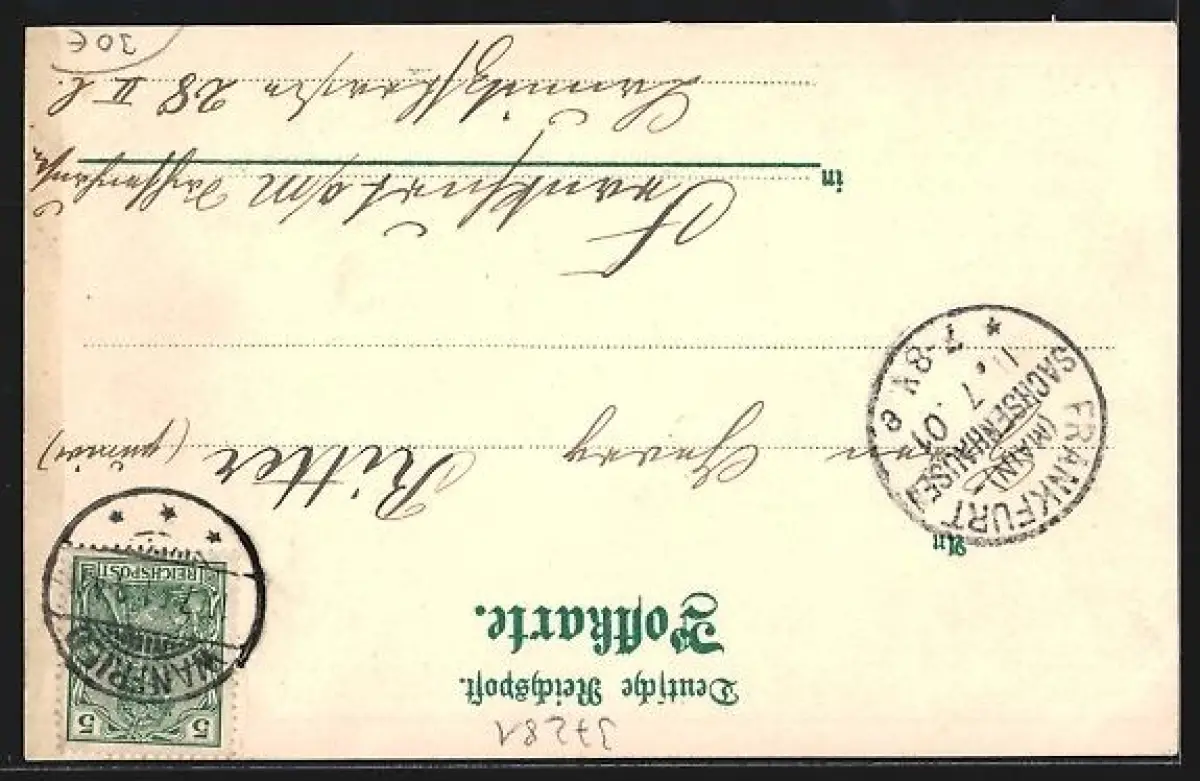 37281
Deutsche Reichspost.
Postkarte.
5 5
REICHSPOST
WANFRIED
An
Herrn Georg Ritter (junior)
FRANKFURT
(MAIN)
SACHSENHAUSEN
7. 01
7-8V e
in Frankfurt a/M Sachsenhausen
28 II l.
30€